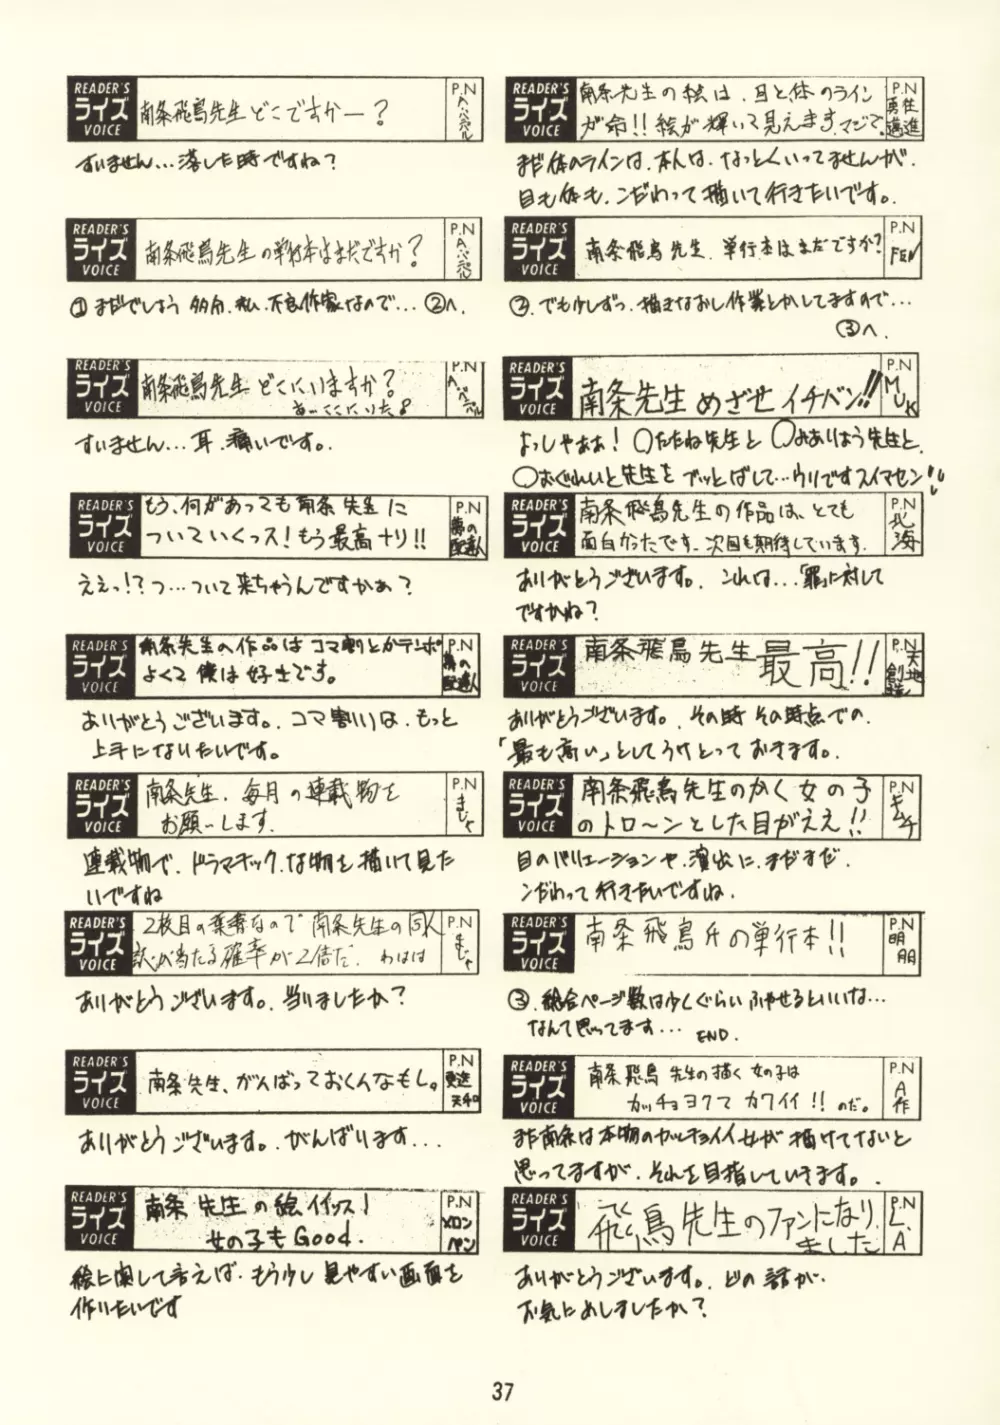 READER'S
ライズ
VOICE
南条飛鳥先生どこですかー?
P.N
すいません…落した時ですね?
READER'S
ライズ
VOICE
南条飛鳥先生の単行本はまだですか?
P.N
①まだでしょう 多分、私、不良作家なので… ②へ.
READER'S
ライズ
VOICE
南条飛鳥先生 どこにいますか?
あ、ここにいた
P.N
すいません…耳、痛いです。
READER'S
ライズ
VOICE
もう、何があっても南条先生に
ついていくっス!もう最高ナリ!!
P.N
夢の
配達人
ええっ!?つ…ついて来ちゃうんですかぁ?
READER'S
ライズ
VOICE
南条先生の作品はコマ割とかテンポ
よくて僕は好きです。
P.N
夢の
配達人
ありがとうございます。コマ割りは、もっと
上手になりたいです。
READER'S
ライズ
VOICE
南条先生、毎月の連載物を
お願いします.
P.N
まじゃ
連載物で、ドラマチックな物を描いて見た
いですね
READER'S
ライズ
VOICE
2枚目の葉書なので南条先生の同人
誌が当たる確率が2倍だ. わはは
P.N
まじゃ
ありがとうございます。当りましたか?
READER'S
ライズ
VOICE
南条先生、がんばっておくんなもし。
P.N
ありがとうございます。がんばります…
READER'S
ライズ
VOICE
南条先生の絵イイッス!
女の子もGood.
P.N
メロン
ペン
絵に関して言えば、もう少し見やすい画面を
作りたいです
READER'S
ライズ
VOICE
南条先生の絵は、目と体のライン
が命!!絵が輝いて見えます、マジで。
P.N
勇往
邁進
まだ体のラインは、本人は、なっとくいってませんが、
目も体も、こだわって描いて行きたいです。
READER'S
ライズ
VOICE
南条飛鳥先生、単行本はまだですか?
P.N
FEN
②、でも少しずつ、描きなおし作業とかしてますので…
③へ.
READER'S
ライズ
VOICE
南条先生めざせイチバン!!
P.N
MUK
よっしゃぁぁ!〇たたね先生と〇みありょう先生と、
〇おぐれいと先生をブッとばして…ウソですスイマセン!!
READER'S
ライズ
VOICE
南条飛鳥先生の作品は、とても
面白かったです。次回も期待しています.
P.N
北海
ありがとうございます。これは…「罪」に対して
ですかね?
READER'S
ライズ
VOICE
南条飛鳥先生最高!!
P.N
天地
創造
ありがとうございます。その時その時点での、
「最も高い」としてうけとっておきます。
READER'S
ライズ
VOICE
南条飛鳥先生のかく女の子
のトロ〜ンとした目がええ!!
P.N
キムチ
目のバリエーションや、演出に、まだまだ、
こだわって行きたいですね.
READER'S
ライズ
VOICE
南条飛鳥氏の単行本!!
P.N
明
③、総合ページ数は少しぐらいふやせるといいな…
なんて思ってます… END.
READER'S
ライズ
VOICE
南条飛鳥先生の描く女の子は
カッチョヨクてカワイイ!!のだ。
P.N
A作
まだ南条は本物のカッチョイイ女が描けてないと
思ってますが、それを目指していきます。
READER'S
ライズ
VOICE
飛鳥先生のファンになり
ました
P.N
ありがとうございます。どの話が、
お気にめしましたか?
37